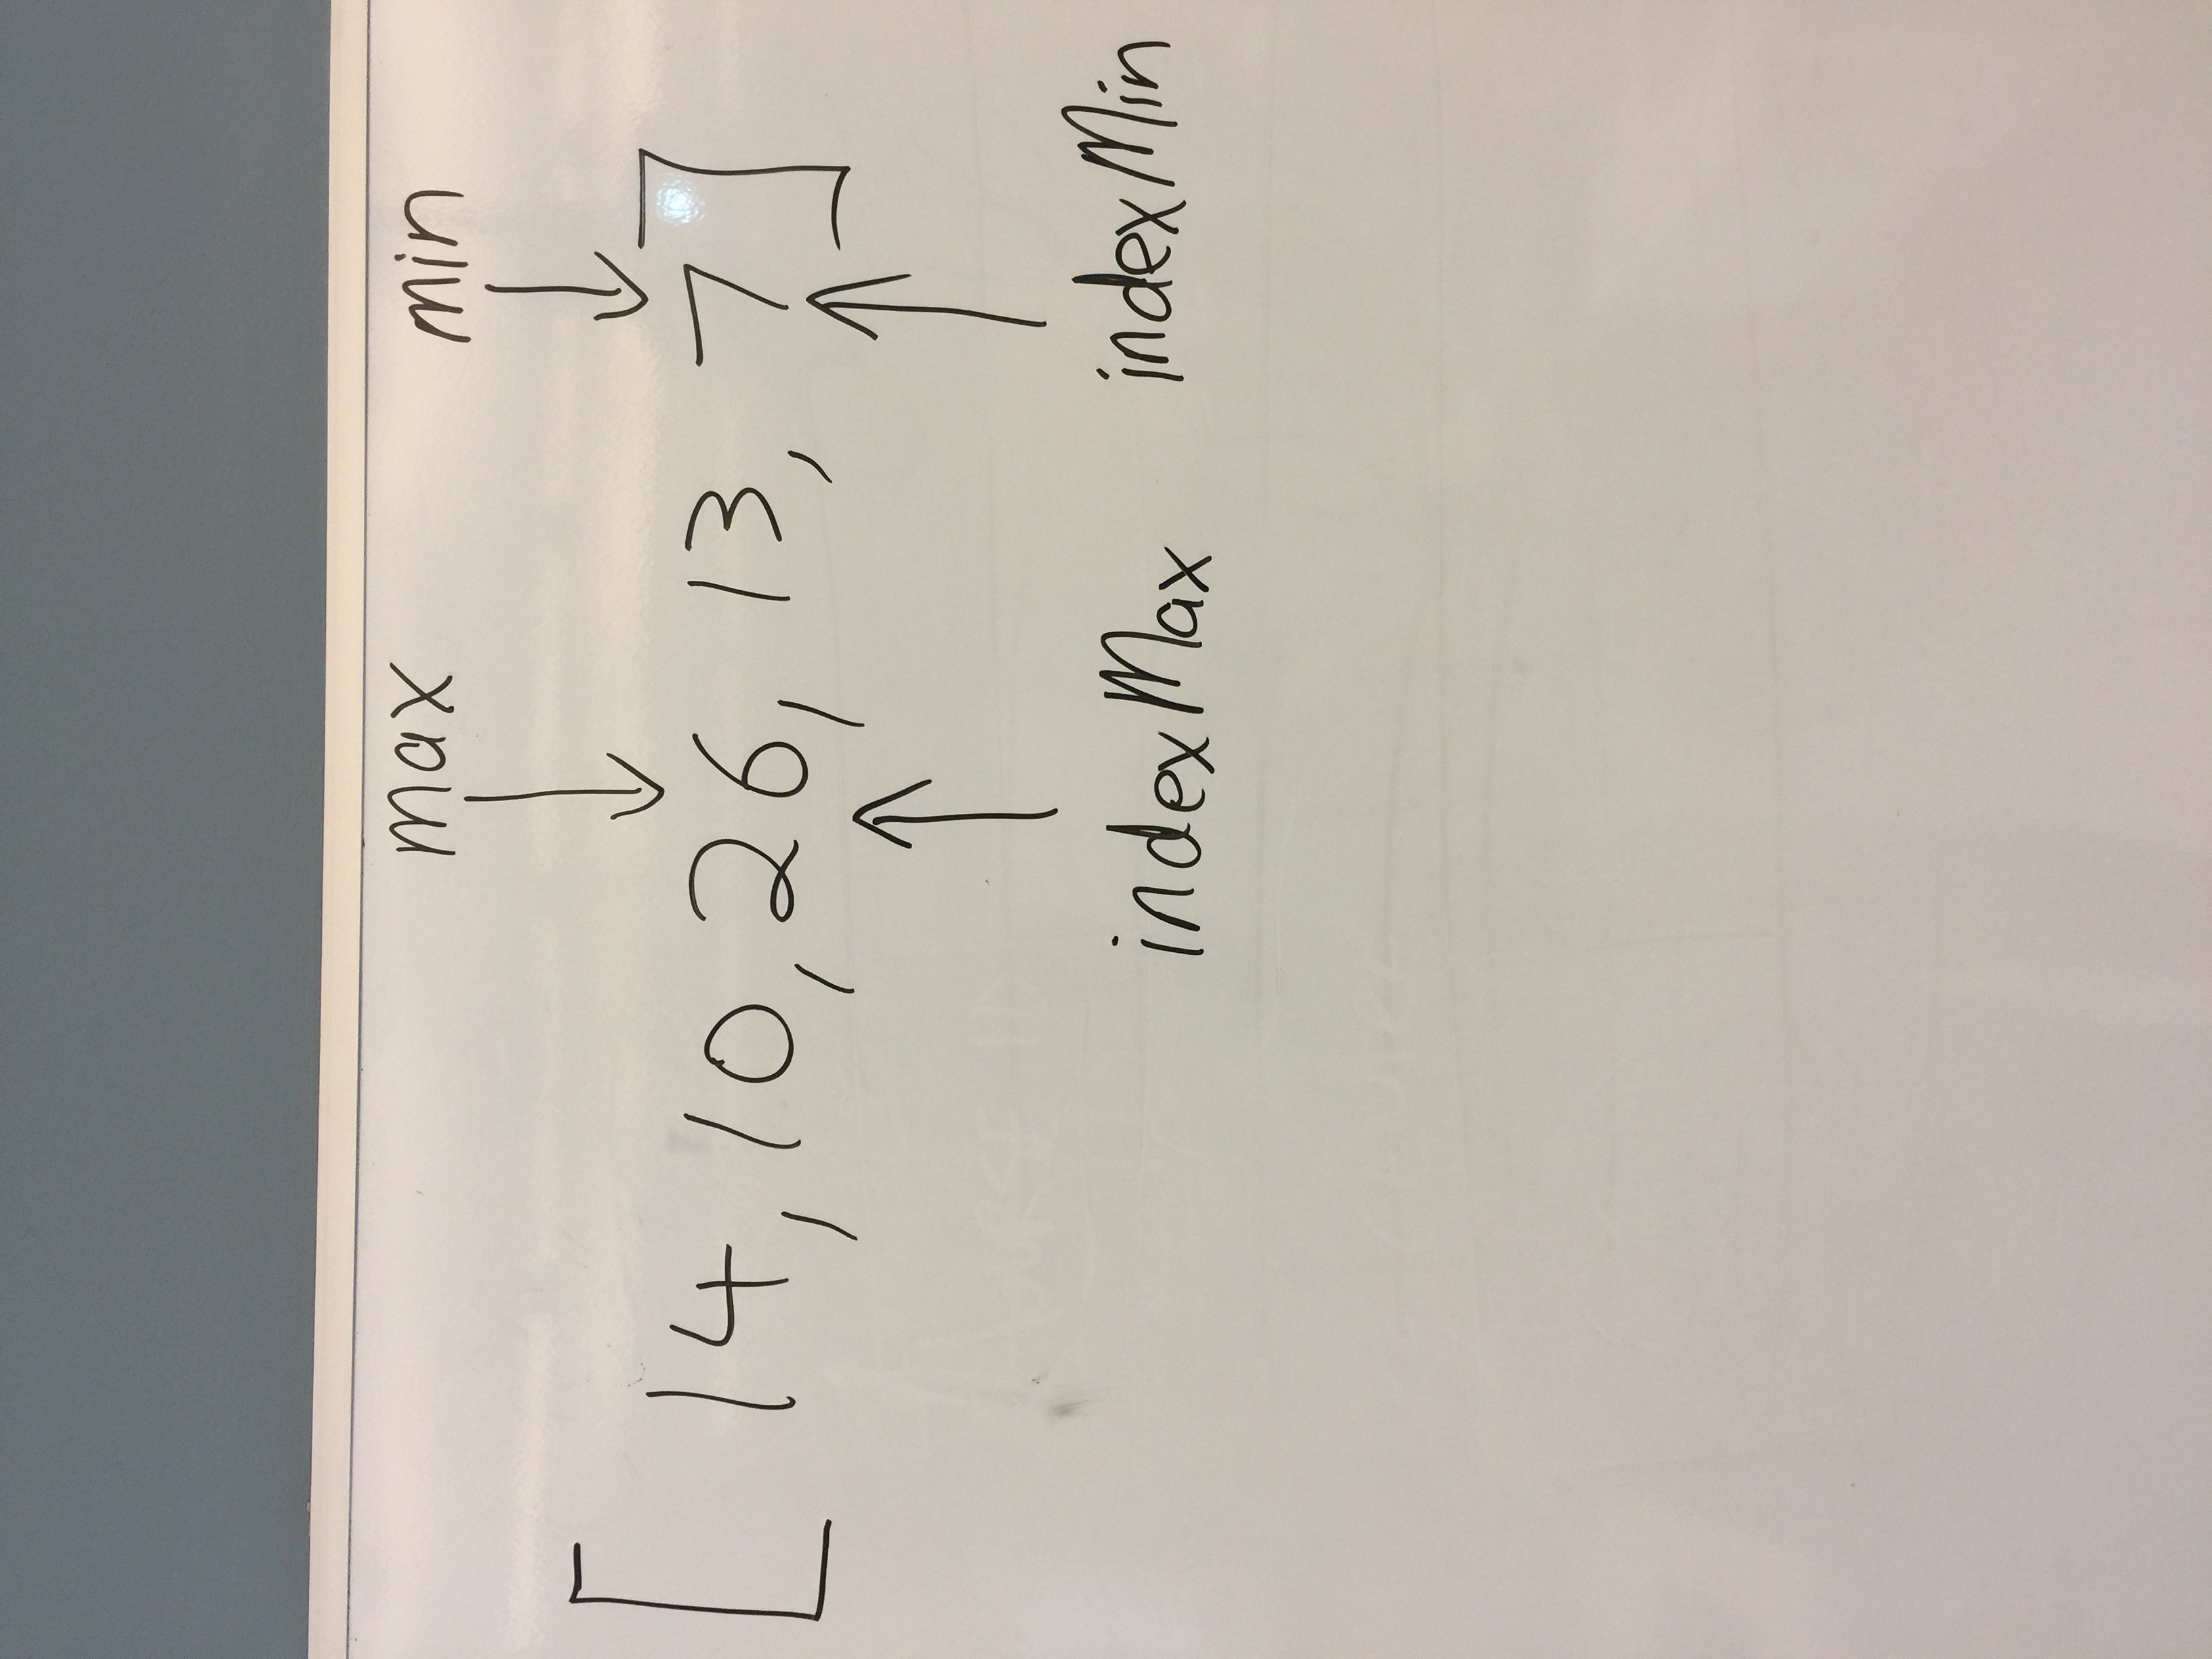 max min
[ 14, 10, 26, 13, 7 ]
indexMax indexMin